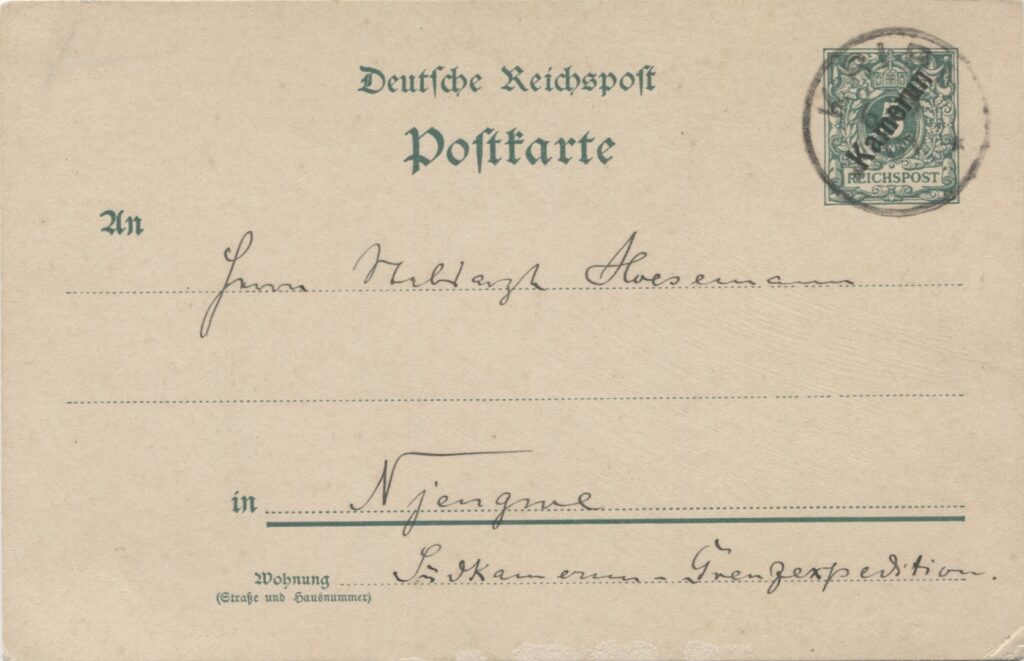 Deutsche Reichspost
Postkarte
KRIBI
5
Kamerun
REICHSPOST
An
Herrn Stabsarzt Hoesemann
in Njengwe
Wohnung Südkamerun-Grenzexpedition.
(Straße und Hausnummer)